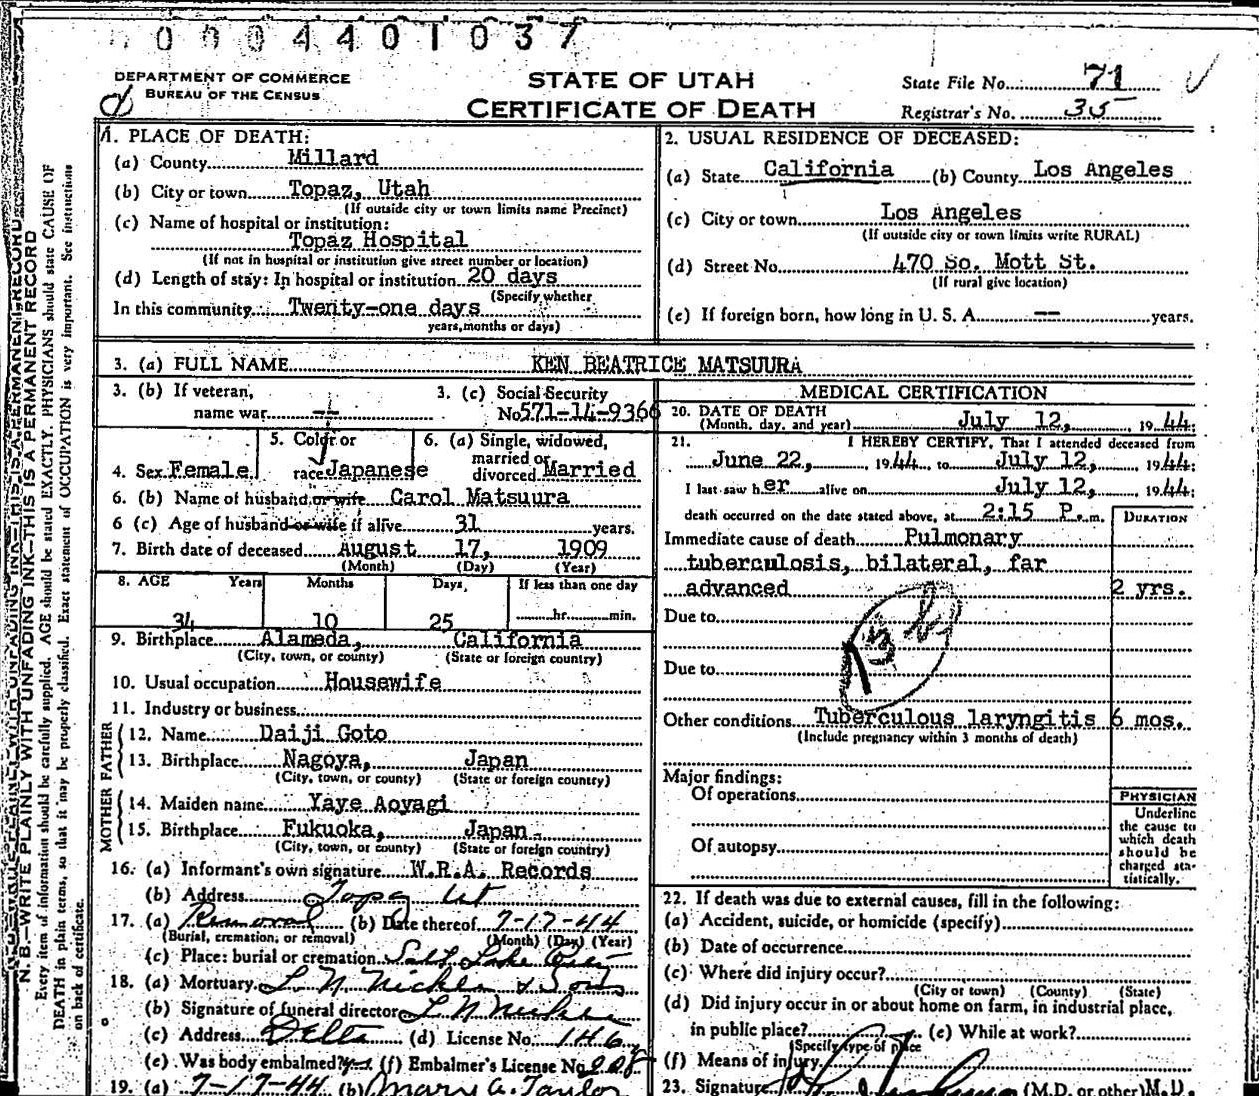 0004401037
DEPARTMENT OF COMMERCE
BUREAU OF THE CENSUS
STATE OF UTAH
CERTIFICATE OF DEATH
State File No. 71
Registrar's No. 35
N. B.—WRITE PLAINLY WITH UNFADING INK—THIS IS A PERMANENT RECORD
Every item of information should be carefully supplied. AGE should be stated EXACTLY. PHYSICIANS should state CAUSE OF
DEATH in plain terms, so that it may be properly classified. Exact statement of OCCUPATION is very important. See instructions
on back of certificate.
1. PLACE OF DEATH:
(a) County Millard
(b) City or town Topaz, Utah
(If outside city or town limits name Precinct)
(c) Name of hospital or institution:
Topaz Hospital
(If not in hospital or institution give street number or location)
(d) Length of stay: In hospital or institution 20 days
(Specify whether
In this community Twenty-one days
years, months or days)
2. USUAL RESIDENCE OF DECEASED:
(a) State California (b) County Los Angeles
(c) City or town Los Angeles
(If outside city or town limits write RURAL)
(d) Street No. 470 So. Mott St.
(If rural give location)
(e) If foreign born, how long in U. S. A. -- years.
3. (a) FULL NAME KEN BEATRICE MATSUURA
3. (b) If veteran,
name war --
3. (c) Social Security
No. 571-14-9366
4. Sex Female
5. Color or
race Japanese
6. (a) Single, widowed,
married or
divorced Married
6. (b) Name of husband or wife Carol Matsuura
6 (c) Age of husband or wife if alive 31 years.
7. Birth date of deceased August 17, 1909
(Month) (Day) (Year)
8. AGE Years Months Days If less than one day
34 10 25 hr. min.
9. Birthplace Alameda, California
(City, town, or county) (State or foreign country)
10. Usual occupation Housewife
11. Industry or business
FATHER
12. Name Daiji Goto
13. Birthplace Nagoya, Japan
(City, town, or county) (State or foreign country)
MOTHER
14. Maiden name Yaye Aoyagi
15. Birthplace Fukuoka, Japan
(City, town, or county) (State or foreign country)
16. (a) Informant's own signature W.R.A. Records
(b) Address Topaz Ut
17. (a) Removal (b) Date thereof 7-17-44
(Burial, cremation, or removal) (Month) (Day) (Year)
(c) Place: burial or cremation Salt Lake City
18. (a) Mortuary L N Nickle & Sons
(b) Signature of funeral director L N Nickle
(c) Address Delta (d) License No. 146
(e) Was body embalmed? yes (f) Embalmer's License No. 208
19. (a) 7-17-44 (b) Mary A. Taylor
MEDICAL CERTIFICATION
20. DATE OF DEATH
(Month, day, and year) July 12, 1944;
21. I HEREBY CERTIFY, That I attended deceased from
June 22, 1944, to July 12, 1944;
I last saw her alive on July 12, 1944;
death occurred on the date stated above, at 2:15 P. m.
DURATION
Immediate cause of death Pulmonary
tuberculosis, bilateral, far
advanced 2 yrs.
Due to
13 b
Due to
Other conditions Tuberculous laryngitis 6 mos.
(Include pregnancy within 3 months of death)
Major findings:
Of operations
Of autopsy
PHYSICIAN
Underline
the cause to
which death
should be
charged sta-
tistically.
22. If death was due to external causes, fill in the following:
(a) Accident, suicide, or homicide (specify)
(b) Date of occurrence
(c) Where did injury occur?
(City or town) (County) (State)
(d) Did injury occur in or about home on farm, in industrial place,
in public place? (e) While at work?
(Specify type of place
(f) Means of injury
23. Signature (M.D. or other) M.D.